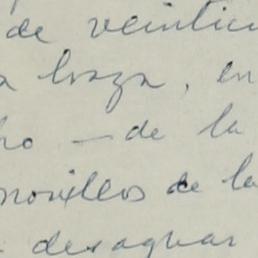 de veintici
a braza, en
ho — de la
novillos de la
desaguar